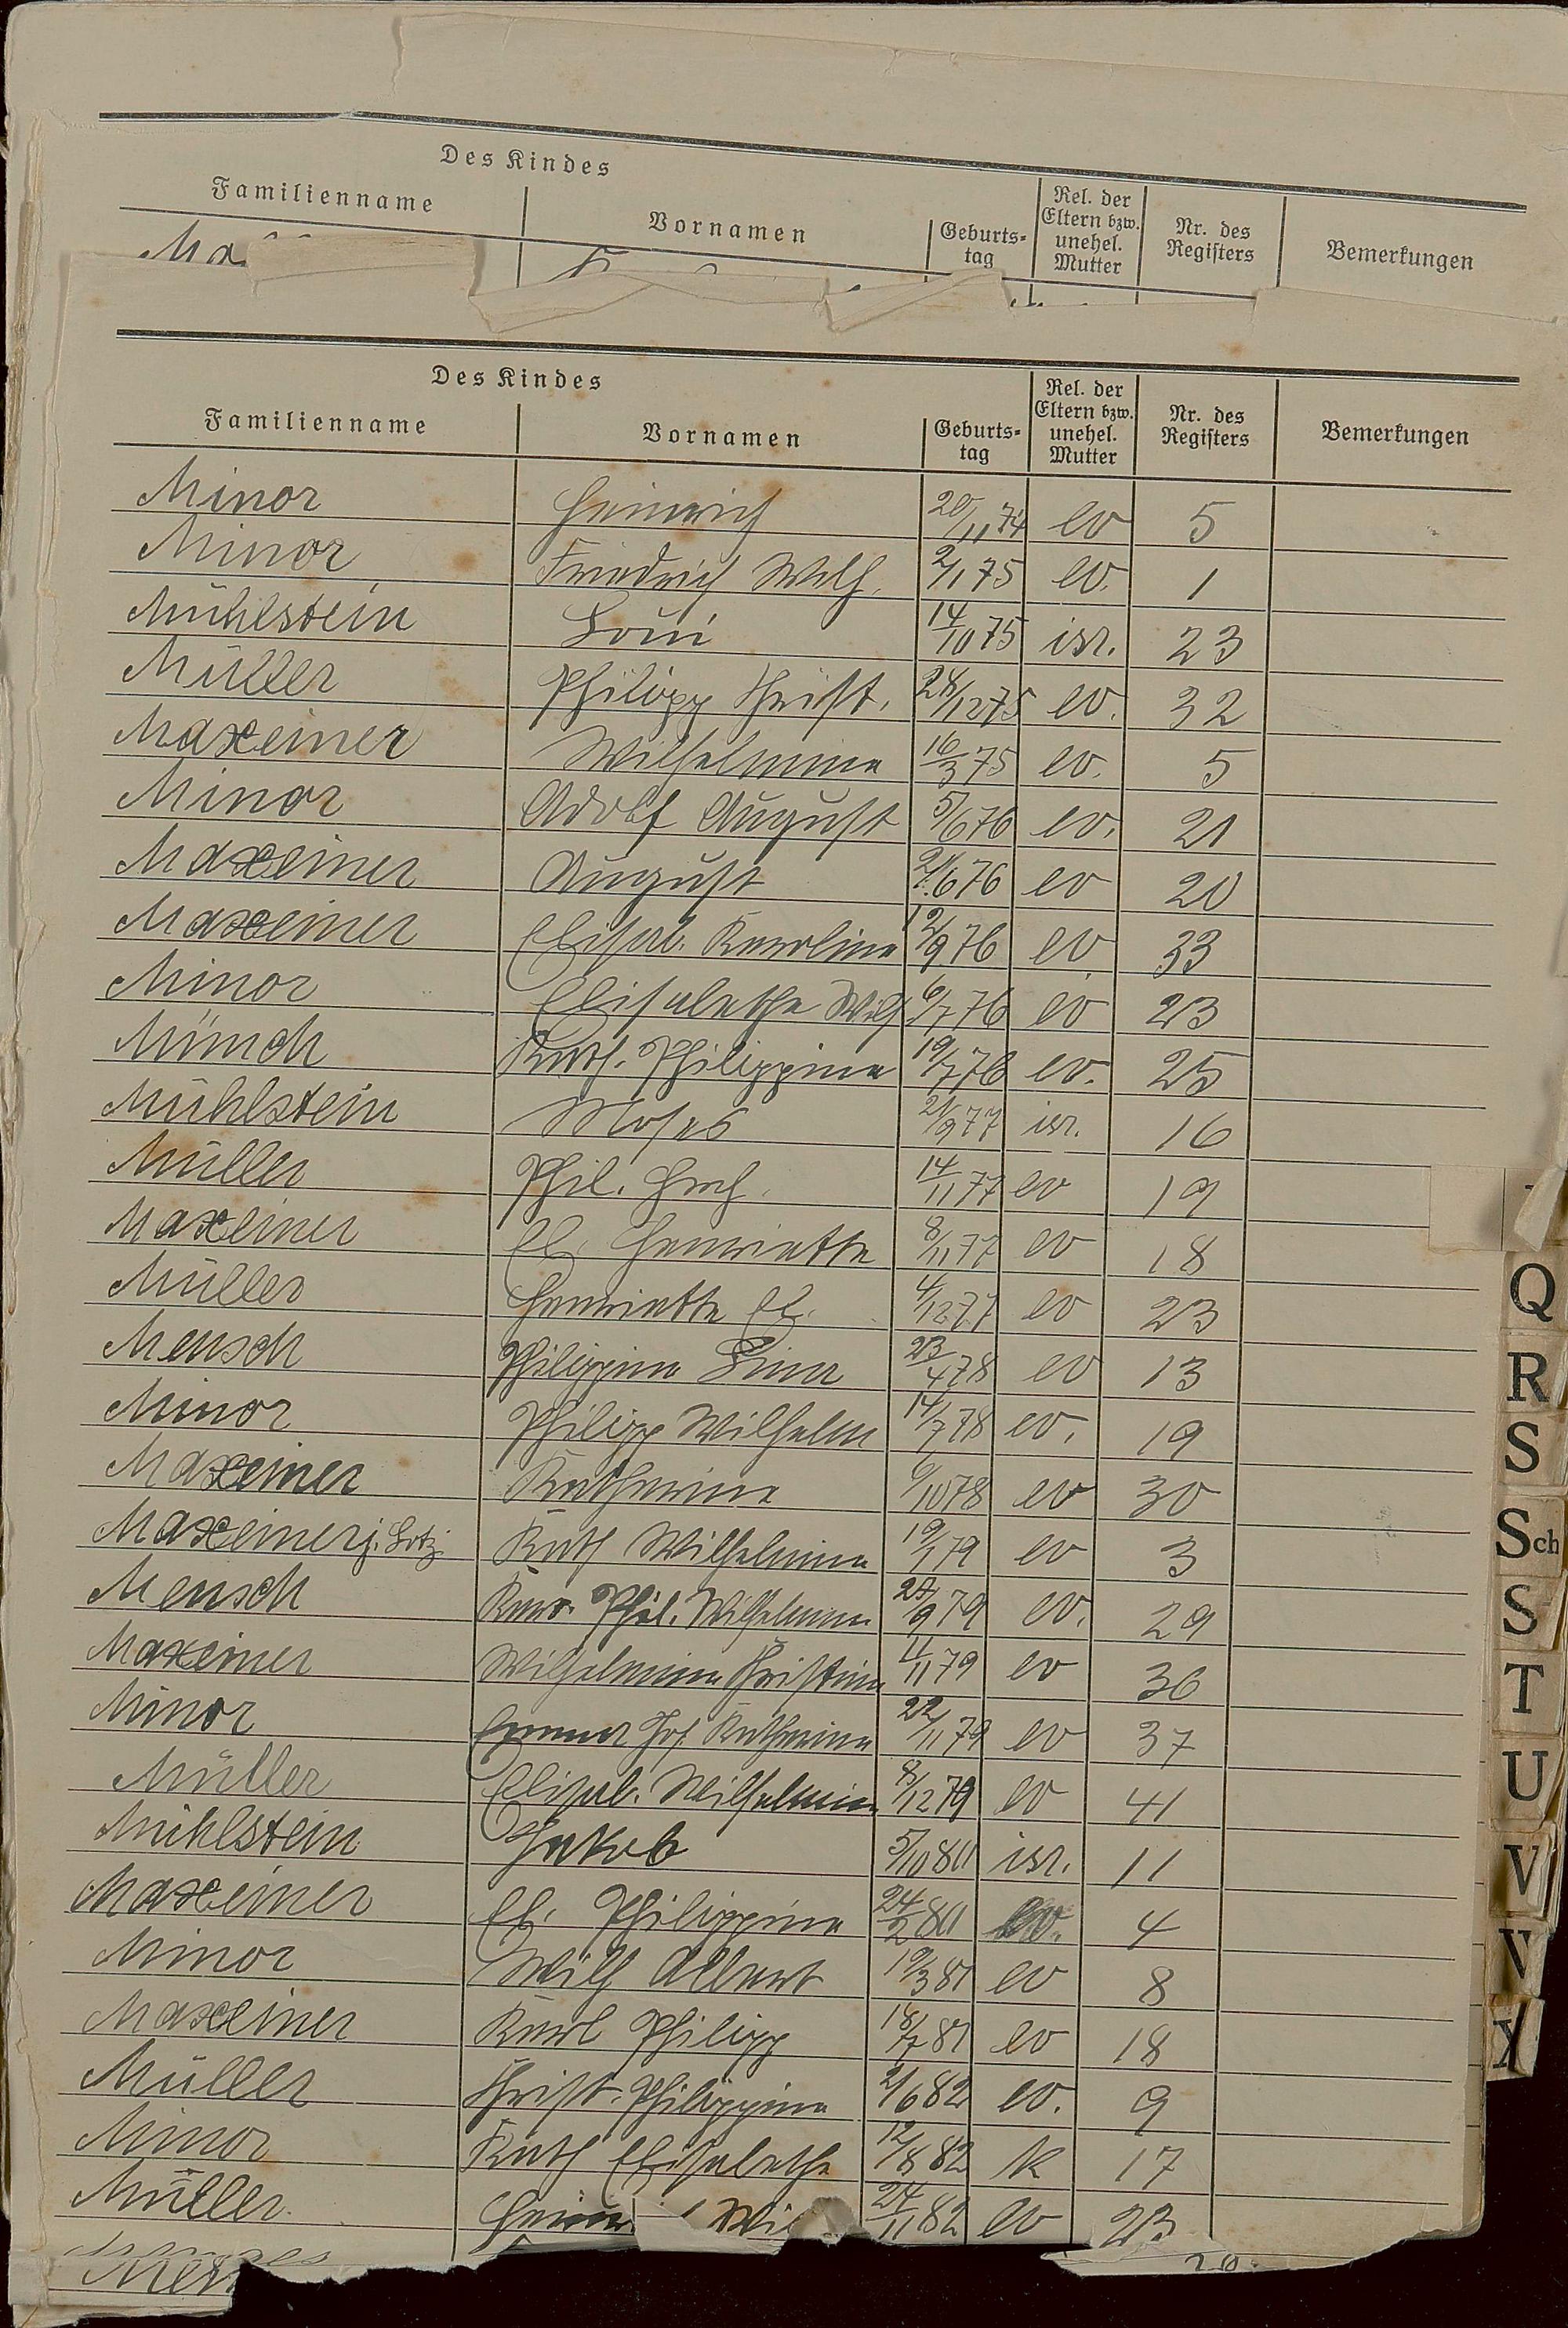 Des Kindes
Familienname Vornamen Geburts- tag Rel. der Eltern bzw. unehel. Mutter Nr. des Registers Bemerkungen
Des Kindes
Familienname Vornamen Geburts- tag Rel. der Eltern bzw. unehel. Mutter Nr. des Registers Bemerkungen
Minor Heinrich 20/11 74 ev 5
Minor Friedrich Wilh. 2/1 75 ev. 1
Mühlstein Loui 14/10 75 isr. 23
Müller Philipp Christ. 28/12 75 ev. 32
Maxeiner Wilhelmine 16/3 75 ev. 5
Minor Adolf August 5/6 76 ev. 21
Maxeiner August 2/6 76 ev 20
Maxeiner Elisab. Karoline 12/9 76 ev 33
Minor Elisabetha Wilh 6/7 76 ev 23
Münch Kath. Philippine 19/7 76 ev. 25
Mühlstein Moses 21/9 77 isr. 16
Müller Phil. Hch. 14/11 77 ev 19
Maxeiner El. Henriette 8/11 77 ev 18
Müller Henriette El. 4/12 77 ev 23
Mensch Philippine Lina 23/4 78 ev 13
Minor Philipp Wilhelm 14/7 78 ev. 19
Maxeiner Katharine 6/10 78 ev 30
Maxeiner j. Lotz Kath Wilhelmine 19/1 79 ev 3
Mensch Karo. Phil. Wilhelmine 9 79 ev. 29
Maxeiner Wilhelmine Christine 11 79 ev 36
Minor Emma Katharine 22/11 79 ev 37
Müller Elisab. Wilhelmine 8/12 79 ev 41
Mühlstein Jakob 5/10 80 isr. 11
Maxeiner El. Philippine 24/2 80 ev. 4
Minor Wilh Albert 19/3 81 ev 8
Maxeiner Karl Philipp 18/7 81 ev 18
Müller Christ. Philippine 2/6 82 ev. 9
Minor Kath Elisabetha 12/8 82 k 17
Müller 24/11 82 ev 23
Q
R
S
Sch
S
T
U
V